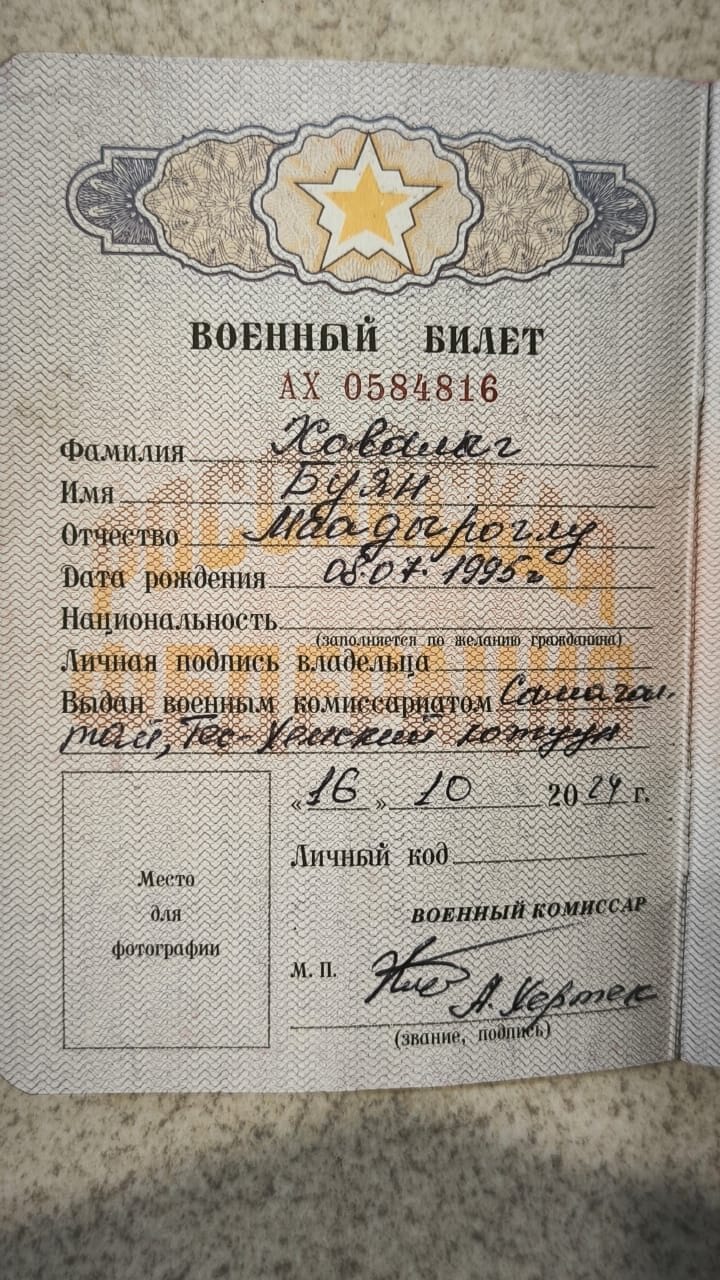 ВОЕННЫЙ БИЛЕТ
АХ 0584816
Фамилия Ховалыг
Имя Буян
Отчество Маадыр оглу
Дата рождения 08.07.1995 г
Национальность
(заполняется по желанию гражданина)
Личная подпись владельца
Выдан военным комиссариатом Самагал-
тай, Тес-Хемский кожуун
«16» 10 2024 г.
Личный код
Место
для
фотографии
ВОЕННЫЙ КОМИССАР
М. П.
А. Хертек
(звание, подпись)